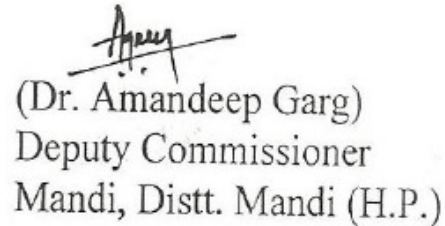 (Dr. Amandeep Garg)
Deputy Commissioner
Mandi, Distt. Mandi (H.P.)